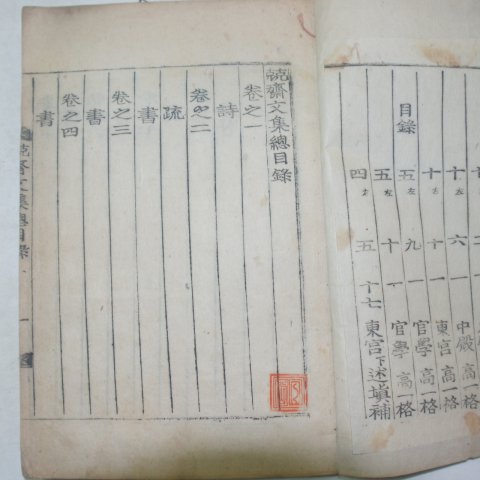 目錄
十左 六 一 中殿 高一格
十右 十一 一 東宮 高一格
五左 九 一 官學 高一格
五左 十 一 官學 高一格
四右 五 十七 東宮下述塡補
齋文集總目錄
卷之一
詩
卷之二
疏
書
卷之三
書
卷之四
書
齋文集總目錄 一